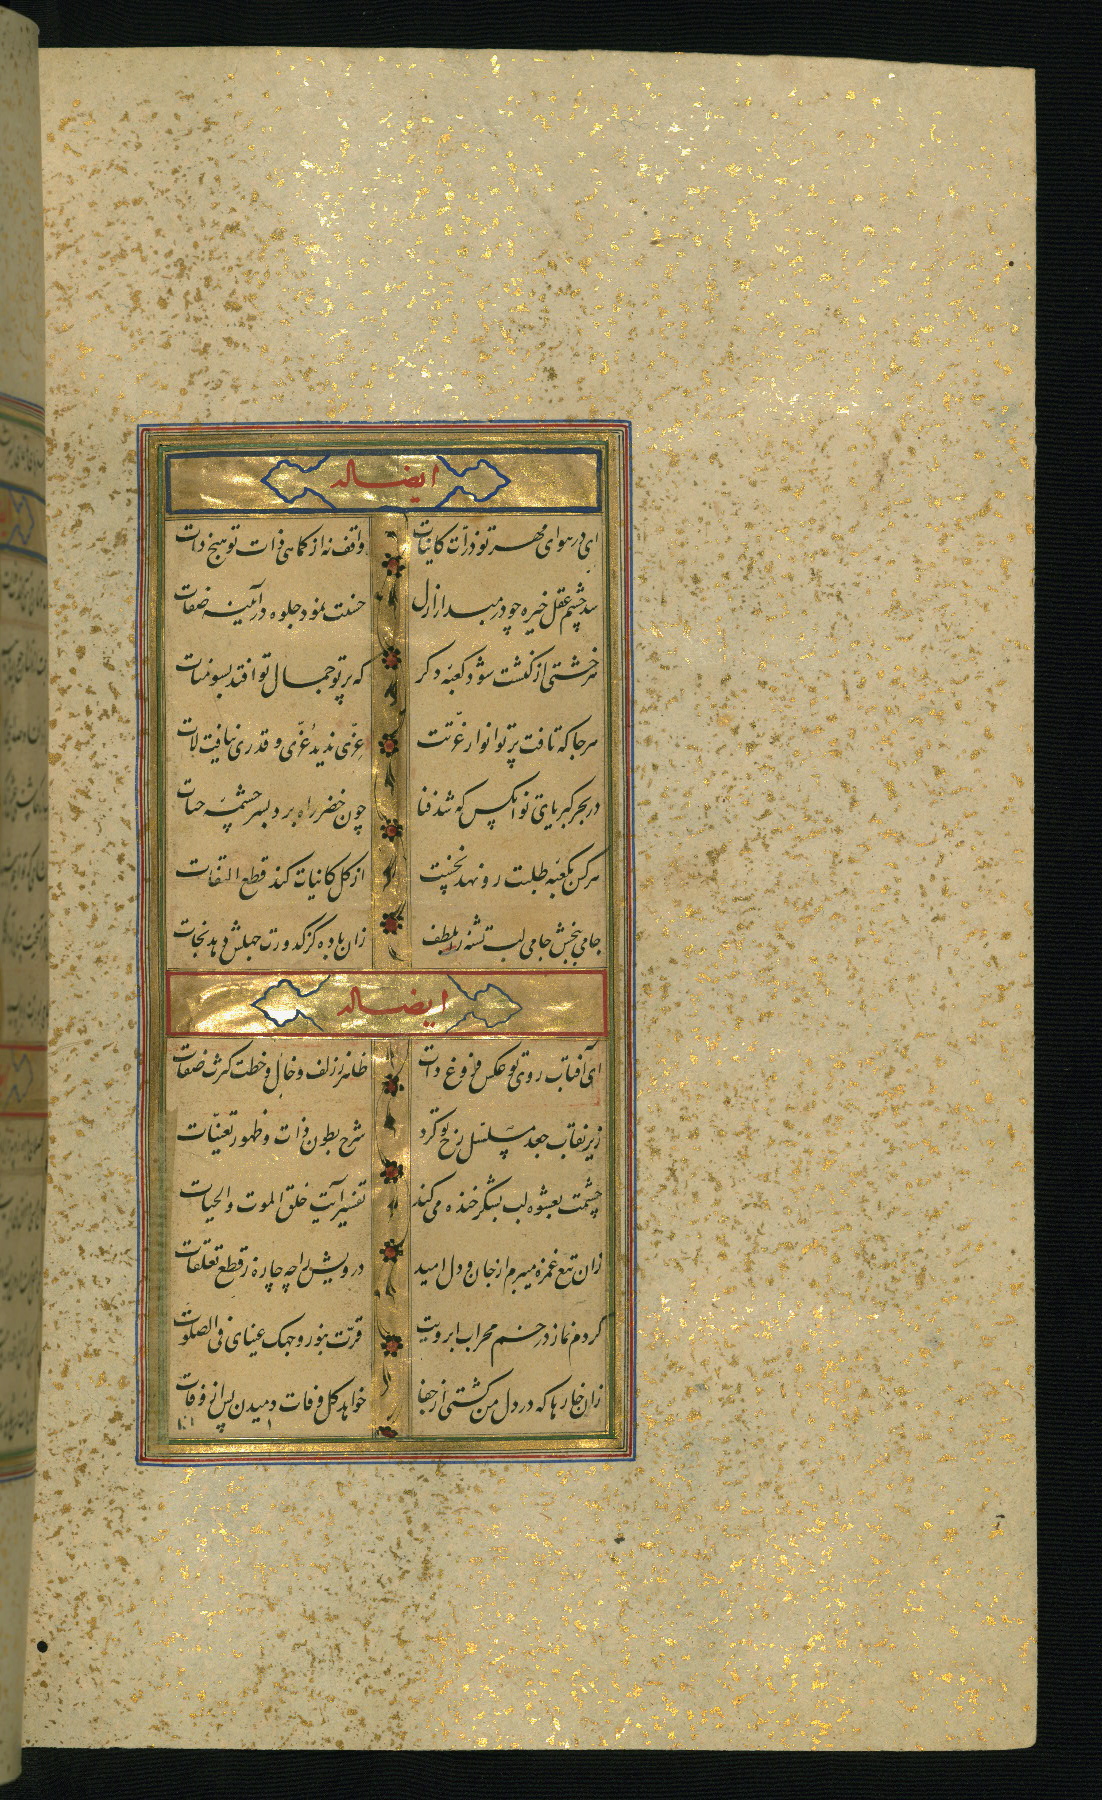 ایضاله
ای در هوای مهر تو ذرات کائنات واقف نه از کماهی ذات تو هیچ ذات
شد چشم عقل خیره چو در مبدا ازل حسنت نمود جلوه در آئینه صفات
هر خشتی از کنشت شود کعبه دگر که پرتو جمال تو افتد بسومنات
هر جا که تافت پرتو انوار عزتت عزی ندید عزی و قدری نیافت لات
در بحر کبریای تو آنکس که شد فنا چون خضر راه برد بسرچشمه حیات
هرکس بکعبه طلبت رو نهد نخست از کل کائنات کند قطع التفات
جامی ببخش جامی لب تشنه را بلطف زان باده کز کدورت جهلش دهد نجات
ایضاله
ای آفتاب روی تو عکس فروغ ذات ظاهر ز زلف و خال و خطت کثرت صفات
زیر نقاب جعد مسلسل رخ تو کرد شرح بطون ذات و ظهور تعینات
چشمت بعشوه لب بشکر خنده می کند تفسیر آیت خلق الموت والحیات
زان تیغ غمزه میبرم از جان و دل امید درویش را چه چاره ز قطع تعلقات
کردم نماز در خم محراب ابرویت قرت بنور وجهک عینای فی الصلوت
زان خارها که در دل من کشتی از جفا خواهد گل وفات دمیدن پس از وفات